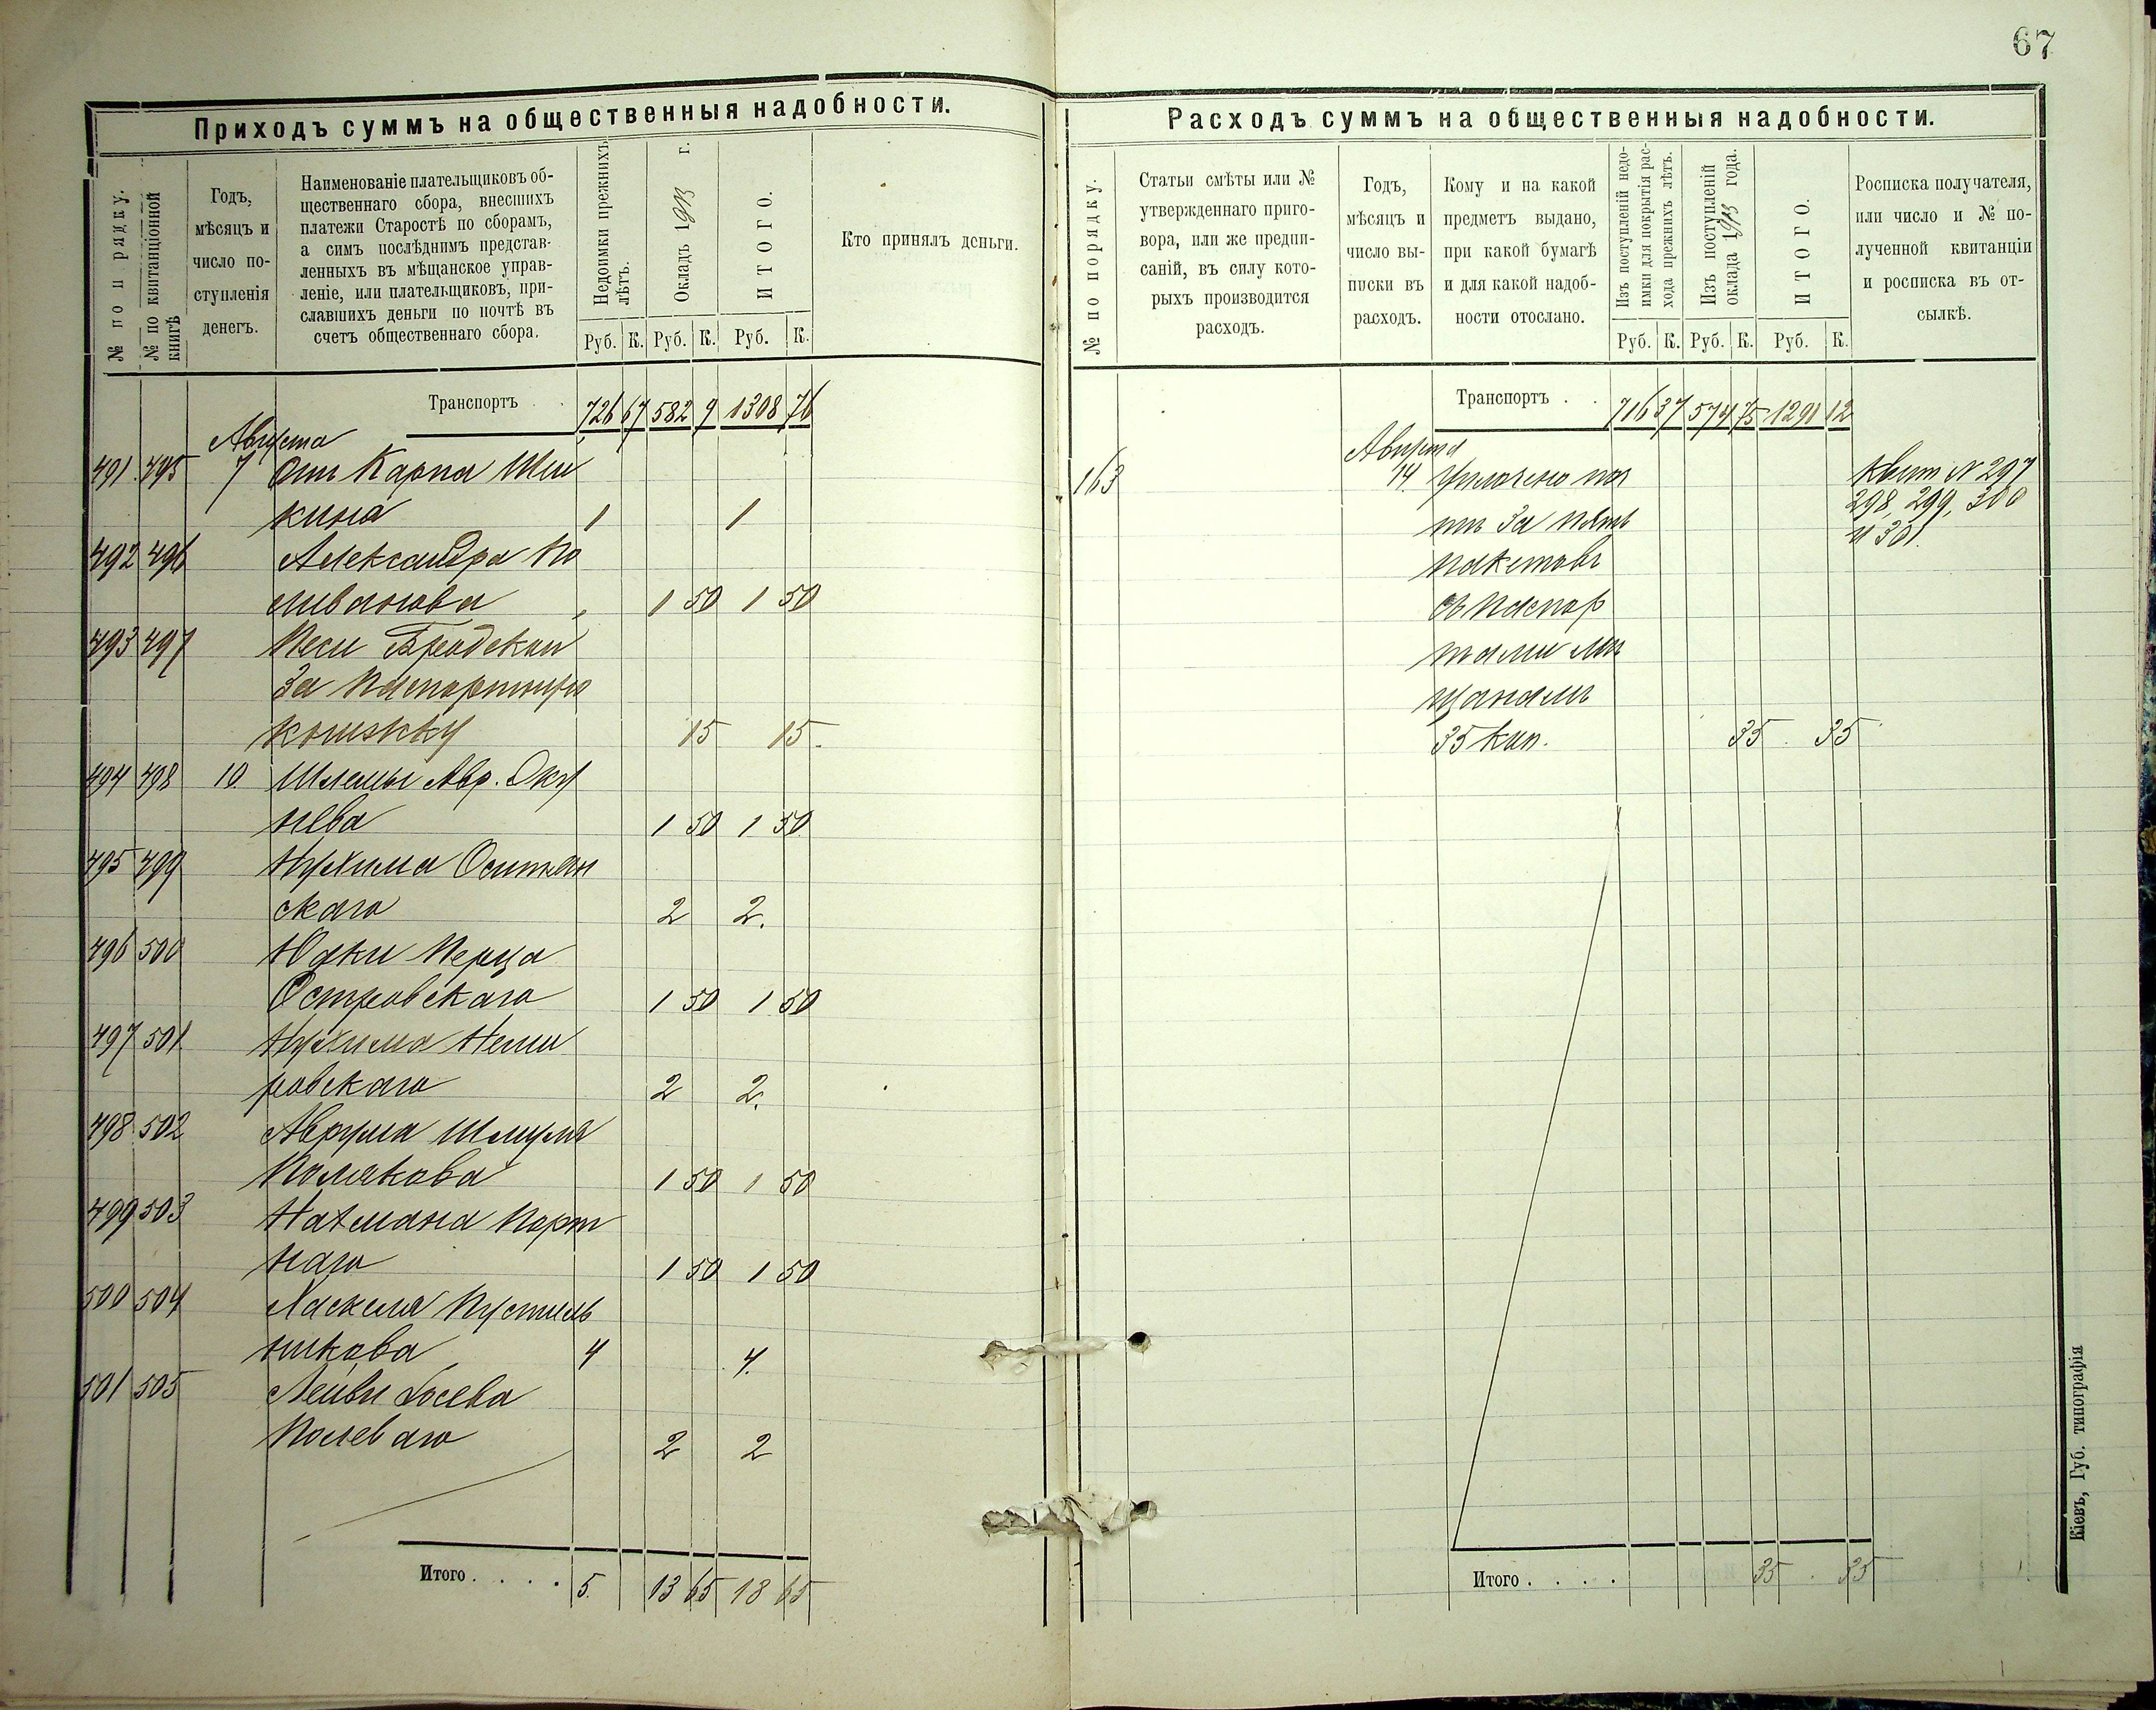 67
Приходъ суммъ на общественныя надобности.
№ по порядку.
№ по квитанціонной книгѣ
Годъ,
мѣсяцъ и
число по-
ступленія
денегъ.
Наименованіе плательщиковъ об-
щественнаго сбора, внесшихъ
платежи Старостѣ по сборамъ,
а симъ послѣднимъ представ-
ленныхъ въ мѣщанское управ-
леніе, или плательщиковъ, при-
славшихъ деньги по почтѣ въ
счетъ общественнаго сбора.
Недоимки прежнихъ
лѣтъ.
Окладъ 1913 г.
ИТОГО.
Кто принялъ деньги.
Руб. К. Руб. К. Руб. К.
Транспортъ . . 726 67 582 9 1308 76
Августа
491 495 7 Отъ Карпа Ши
кина 1 1
492 496 Александра По
ливанова 1 50 1 50
493 497 Песи Бродской
За паспортную
книжку 15 15
494 498 10 Шлемы Авр. Оку
нева 1 50 1 50
495 499 Нухима Оситян
скаго 2 2.
496 500 Юдки Перца
Островскаго 1 50 1 50
497 501 Нухима Неми
ровскаго 2 2.
498 502 Аврума Шмуля
Полякова 1 50 1 50
499 503 Нахмана Порт
наго 1 50 1 50
500 504 Хаскеля Пустиль
никова 4 4.
501 505 Лейви Іосева
Полеваго 2 2
Итого . . . . 5. 13 65 18 65
Расходъ суммъ на общественныя надобности.
№ по порядку.
Статьи смѣты или №
утвержденнаго приго-
вора, или же предпи-
саній, въ силу кото-
рыхъ производится
расходъ.
Годъ,
мѣсяцъ и
число вы-
писки въ
расходъ.
Кому и на какой
предметъ выдано,
при какой бумагѣ
и для какой надоб-
ности отослано.
Изъ поступленій недо-
имки для покрытія рас-
хода прежнихъ лѣтъ.
Изъ поступленій
оклада 1913 года.
ИТОГО.
Росписка получателя,
или число и № по-
лученной квитанціи
и росписка въ от-
сылкѣ.
Руб. К. Руб. К. Руб. К.
Транспортъ . . 716 37 574 75 1291 12
Августа
163 14. Уплочено поч Квит № 297
тѣ За пять 298, 299, 300
пакетовъ и 301.
съ паспор
тами мѣ
щанамъ
35 коп. 35 35
Итого . . . . 35 35
Кіевъ, Губ. типографія